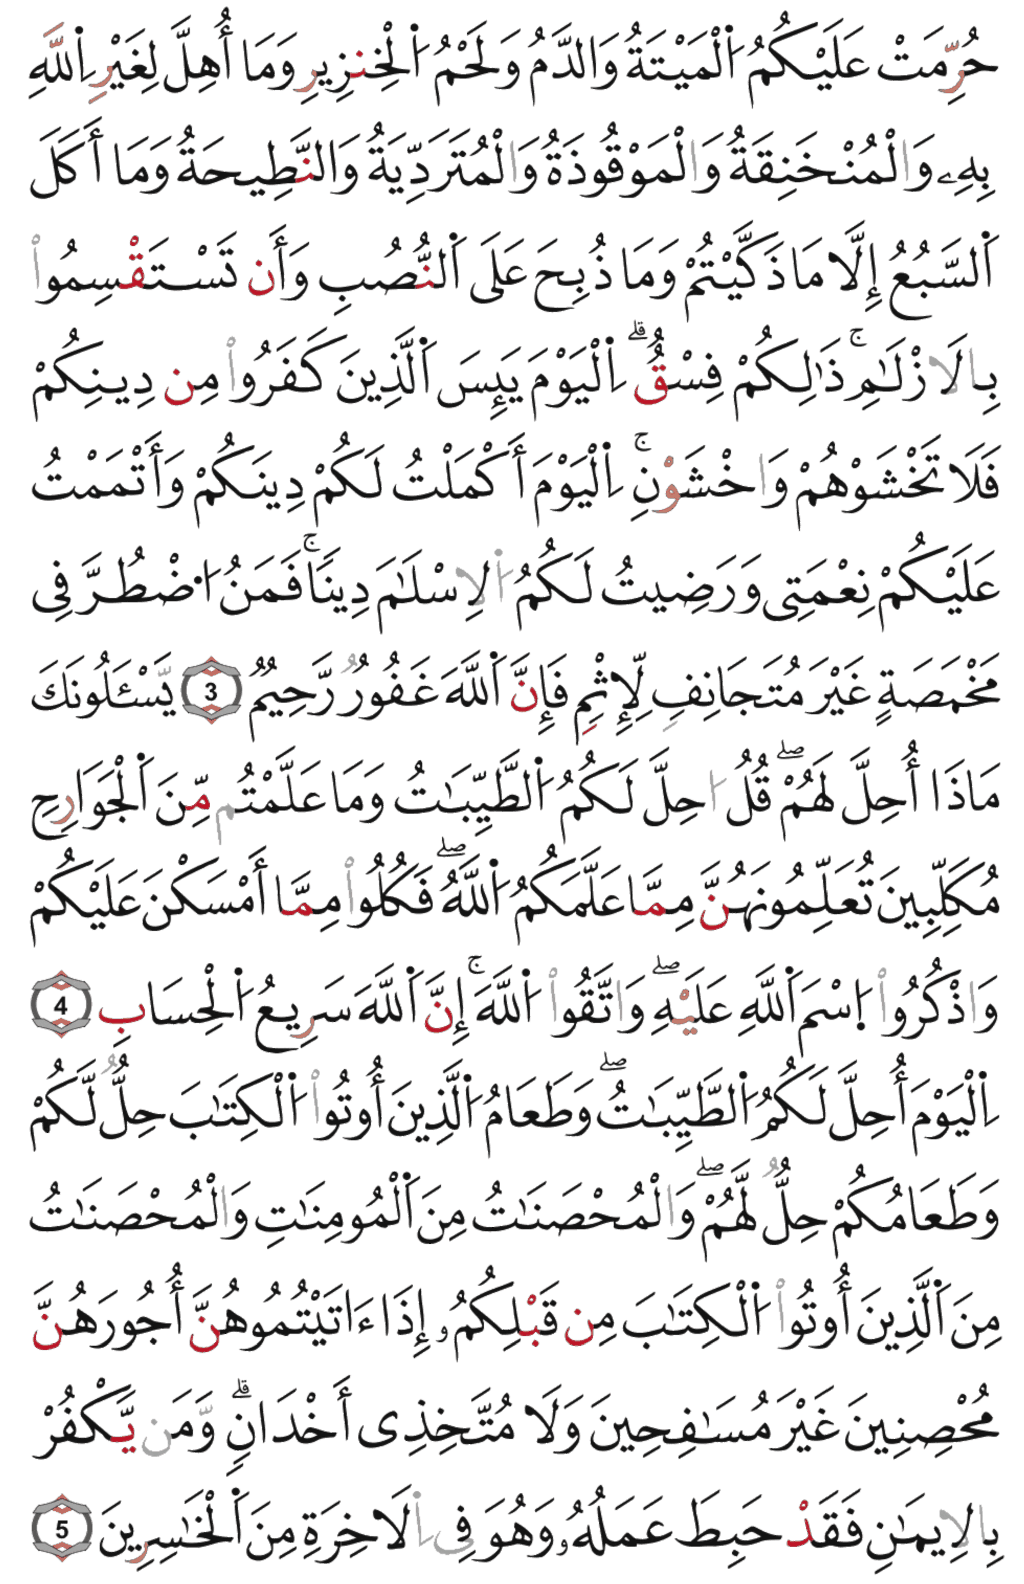 حُرِّمَتْ عَلَيْكُمُ اُ۬لْمَيْتَةُ وَالدَّمُ وَلَحْمُ اُ۬لْخِنزِيرِ وَمَا أُهِلَّ لِغَيْرِ اِ۬للَّهِ
بِهِۦ وَالْمُنْخَنِقَةُ وَالْمَوْقُوذَةُ وَالْمُتَرَدِّيَةُ وَالنَّطِيحَةُ وَمَا أَكَلَ
اَ۬لسَّبُعُ إِلَّا مَا ذَكَّيْتُمْ وَمَا ذُبِحَ عَلَى اَ۬لنُّصُبِ وَأَن تَسْتَقْسِمُواْ
بِالَازْلَٰمِۚ ذَٰلِكُمْ فِسْقٌۗ اِ۬لْيَوْمَ يَئِسَ اَ۬لَّذِينَ كَفَرُواْ مِن دِينِكُمْ
فَلَا تَخْشَوْهُمْ وَاخْشَوْنِۚ اِ۬لْيَوْمَ أَكْمَلْتُ لَكُمْ دِينَكُمْ وَأَتْمَمْتُ
عَلَيْكُمْ نِعْمَتِى وَرَضِيتُ لَكُمُ اُ۬لِاسْلَٰمَ دِينًاۚ فَمَنُ اُ۟ضْطُرَّ فِى
مَخْمَصَةٍ غَيْرَ مُتَجَانِفٍ لِّإِثْمٍ فَإِنَّ اَ۬للَّهَ غَفُورٌ رَّحِيمٌ 3 يَسْـَٔلُونَكَ
مَاذَا أُحِلَّ لَهُمْۖ قُلُ احِلَّ لَكُمُ اُ۬لطَّيِّبَٰتُ وَمَا عَلَّمْتُم مِّنَ اَ۬لْجَوَارِحِ
مُكَلِّبِينَ تُعَلِّمُونَهُنَّ مِمَّا عَلَّمَكُمُ اُ۬للَّهُۖ فَكُلُواْ مِمَّا أَمْسَكْنَ عَلَيْكُمْ
وَاذْكُرُواْ اُ۪سْمَ اَ۬للَّهِ عَلَيْهِۖ وَاتَّقُواْ اُ۬للَّهَۚ إِنَّ اَ۬للَّهَ سَرِيعُ اُ۬لْحِسَابِ 4
اِ۬لْيَوْمَ أُحِلَّ لَكُمُ اُ۬لطَّيِّبَٰتُۖ وَطَعَامُ اُ۬لَّذِينَ أُوتُواْ اُ۬لْكِتَٰبَ حِلٌّ لَّكُمْ
وَطَعَامُكُمْ حِلٌّ لَّهُمْۖ وَالْمُحْصَنَٰتُ مِنَ اَ۬لْمُومِنَٰتِ وَالْمُحْصَنَٰتُ
مِنَ اَ۬لَّذِينَ أُوتُواْ اُ۬لْكِتَٰبَ مِن قَبْلِكُمُۥ إِذَا ءَاتَيْتُمُوهُنَّ أُجُورَهُنَّ
مُحْصِنِينَ غَيْرَ مُسَٰفِحِينَ وَلَا مُتَّخِذِى أَخْدَانٍۗ وَّمَن يَّكْفُرْ
بِالِايمَٰنِ فَقَدْ حَبِطَ عَمَلُهُۥ وَهُوَ فِى اِ۬لَاخِرَةِ مِنَ اَ۬لْخَٰسِرِينَ 5